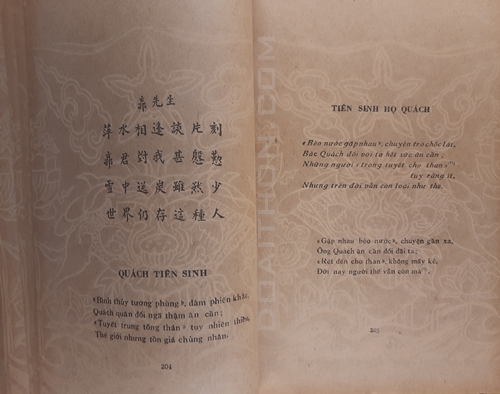 郭先生
萍水相逢談片刻
郭君對我甚慇懃
雪中送炭雖然少
世界仍存這種人
QUÁCH TIÊN SINH
«Bình thủy tương phùng», đàm phiến khắc,
Quách quân đối ngã thậm ân cần;
«Tuyết trung tống thán» tuy nhiên thiểu,
Thế giới nhưng tồn giá chủng nhân.
204
TIÊN SINH HỌ QUÁCH
«Bèo nước gặp nhau», chuyện trò chốc lát,
Bác Quách đối với ta hết sức ân cần;
Những người «trong tuyết cho than»
tuy rằng ít,
Nhưng trên đời vẫn còn loại như thế.
«Gặp nhau bèo nước», chuyện gần xa,
Ông Quách ân cần đối đãi ta;
«Rét đến cho than», không mấy kẻ,
Đời nay người thế vẫn còn mà
205